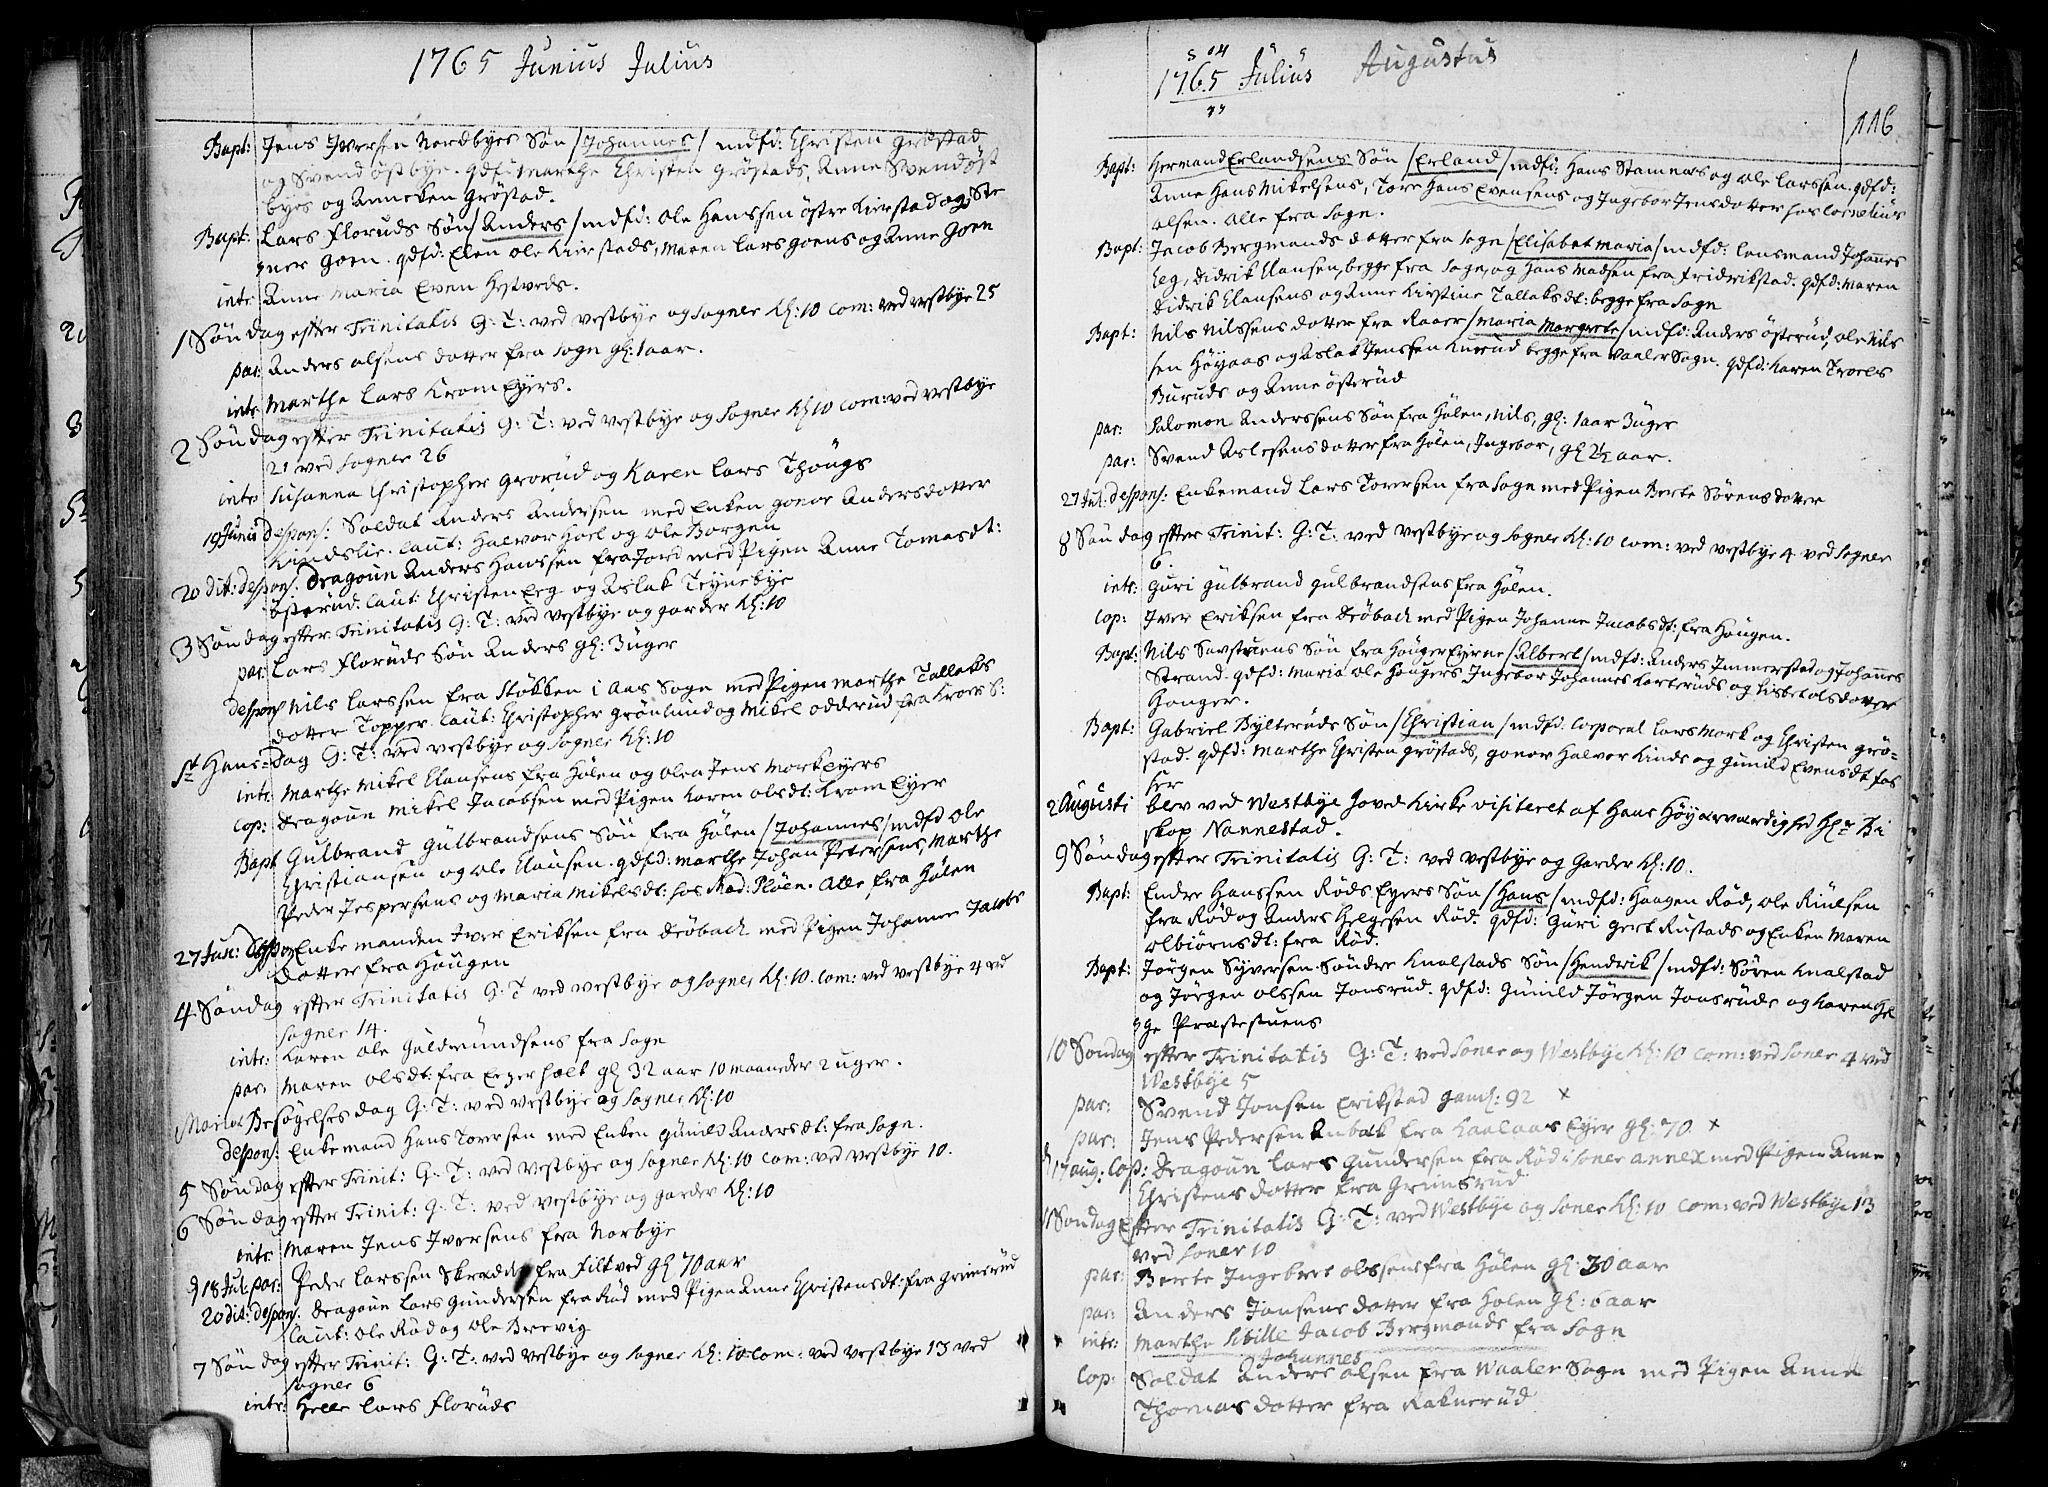 1765 Junius Julius
Bapt: Jens Iversen Nordbyes Søn /Johannes/ mdfd: Christen Grøstad
og Svend østbye. qdfd: Marthe Christen Grøstads, Anne Svend Øst
byes og Anneken Grøstad.
Bapt: Lars Floruds Søn /Anders/ mdfd: Ole Hanssen østre Kierstad og
qdfd: Elen Ole Kierstads, Maren Lars Goens og Anne Goen
intr: Anne Maria Even Hestveds.
1 Søndag efter Trinitatis G: T: ved Vestbye og Sogner Kl: 10 Com: ved Vestbye 25
par: Anders Olsens dotter fra Sogn gl: 1 aar.
intr: Marthe Lars Krom Eyers.
2 Søndag efter Trinitatis G: T: ved Vestbye og Sogner Kl 10 Com: ved Vestbye
21 ved Sogner 26
intr: Susanna Christopher Grorud og Karen Lars Thougs
19 Junii Despons: Soldat Anders Andersen med Enken Gonor Andersdotter
Kindslie. Caut: Halvor Hoel og Ole Borgen
20 dit: Despons: Dragoun Anders Hanssen fra Jord med Pigen Anne Tomasdt:
østerud. Caut: Christen Erg og Aslak Teynebye
3 Søndag efter Trinitatis G: T: ved Vestbye og Garder Kl: 10
par: Lars Floruds Søn Anders gl: 3 uger
Despons Nils Larssen fra Støkken i Aas Sogn med Pigen Marthe Tallaks
dotter Topper. Caut: Christopher Grønlund og Mikel odderud fra Kroer S:
St Hans-Dag G: T: ved Vestbye og Sogner Kl: 10
intr: Marthe Mikel Clausens fra Hølen og Olea Jens Mork Eyers
Cop: Dragoun Mikel Jacobsen med Pigen Karen Olsdt: Krom Eyer
Bapt Gulbrand Gulbrandsens Søn fra Hølen /Johannes/ mdfd Ole
Christiansen og Ole Clausen. qdfd: Marthe Johan Petersens, Marthe
Peder Jespersens og Maria Mikelsdt: hos Mad: Pløen. Alle fra Hølen
27 Jun: Despons Enkemanden Iver Eriksen fra Drøbach med Pigen Johanne Jacobs
Dotter fra Haugen
4 Søndag efter Trinitatis G: T ved Vestbye og Sogner Kl: 10. Com: ved Vestbye 4 ved
Sogner 14.
intr: Karen Ole Guldmundsens fra Sogn
par: Maren Olsdt: fra gl 32 aar 10 maaneder 2 uger.
Mariæ Besøgelses dag G: T: ved Vestbye og Sogner Kl: 10
Despons: Enkemand Hans Toersen med Enken Gunild Andersdt: fra Sogn.
5 Søndag efter Trinit: G: T: ved Vestbye og Sogner Kl: 10 Com: ved Vestbye 10.
6 Søndag efter Trinit: G: T: ved Vestbye og Garder Kl: 10
intr: Maren Jens Iversens fra Norbye
d 18 Jul: par: Peder Larssen Skrædder fra Filtved gl 70 aar
20 dit: Despons. Dragoun Lars Gundersen fra Rød med Pigen Anne Christensdt: fra Grimsrud
Caut: Ole Rød og Ole Brevig
7 Søndag efter Trinit: G: T: ved Vestbye og Sogner Kl: 10 Com: ved Vestbye 13 ved
Sogner 6
intr: Helle Lars Floruds
1765 Julius Augustus
116
Bapt: Hermand Erlandsens Søn /Erland/ mdfd: Hans Stamnæs og Ole Larssen. qdfd:
Anne Hans Mikelsens, Tore Hans Evensens og Ingebor Jensdotter hos
olsen. Alle fra Sogn.
Bapt: Jacob Bergmands dotter fra Sogn /Elisabet Maria/ mdfd: Lensmand Johannes
Leg, Didrik Clausen, begge fra Sogn, og Hans Madsen fra Fridrikstad. qdfd: Maren
Didrik Clausens og Anne Kirstine Tallaksdt: begge fra Sogn
Bapt: Nils Nilssens dotter fra Raaer /Maria Margrete/ mdfd: Anders østerud, Ole Nils
sen Høyaas og Aslak Jenssen Kurud begge fra Vaaler Sogn. qdfd: Karen Troels
Buruds og Anne østerud
par: Salomon Anderssens Søn fra Hølen, Nils, gl: 1 aar 3 uger
par: Svend Aslesens dotter fra Hølen, Ingebor, gl 2½ aar.
27 Jul: Despons: Enkemand Lars Toersen fra Sogn med Pigen Berte Sørens dotter
8 Søndag efter Trinit: G: T: ved Vestbye og Sogner Kl: 10 Com: ved Vestbye 4 ved Sogner
6.
intr: Guri Gulbrand Gulbrandsens fra Hølen.
Cop: Iver Eriksen fra Drøbach med Pigen Johanne Jacobsdt: fra Haugen.
Bapt: Nils Savstuens Søn fra Houger Eyerne /Albert/ mdfd: Anders Immerstad og Johannes
Strand. qdfd: Maria Ole Hougers Ingebor Johannes Karteruds og Lisbet Olsdotter
Honger.
Bapt: Gabriel Bylteruds Søn /Christian/ mdfd. Corporal Lars Mork og Christen Grø-
stad. qdfd: Marthe Christen Grøstads, Gonor Halvor Kinds og Gunild Evensdt: fos
ser
2 Augusti blev ved Westbye Hoved Kirke visiteret af Hans Høyærværdighed Hr Bi
skop Nannestad.
9 Søndag efter Trinitatis G: T: ved Vestbye og Garder Kl: 10.
Bapt: Endre Hanssen Røds Eyers Søn /Hans/ mdfd: Haagen Rød, Ole Kiulsen
fra Rød og Anders Helgesen Rød. qdfd: Guri Gert Rustads og Enken Maren
Olbiørnsdt: fra Rød.
Bapt: Jørgen Syversen Søndre Knalstads Søn /Hendrik/ mdfd: Søren Knalstad
og Jørgen Olssen Jonsrud. qdfd: Gunild Jørgen Jonsruds og Karen Hel
ge Præstestuens
10 Søndag efter Trinitatis G: T: ved Soner og Westbye Kl: 10 Com: ved Soner 4 ved
Westbye 5
par: Svend Jonsen Erikstad gaml: 92 x
par: Jens Pedersen Anbæk fra Kaalaas Eyer gl: 70. x
d 17 aug: Cop: Dragoun Lars Gundersen fra Rød i Soner Annex med Pigen Anne
Christensdotter fra Grimsrud
11 Søndag Efter Trinitatis G: T: ved Westbye og Soner Kl: 10 Com: ved Westbye 13
ved Soner 10
par: Berte Ingebret Olssens fra Hølen gl: 30 aar
par: Anders Jansens dotter fra Hølen gl: 6 aar
intr: Marthe Sibille Jacob Bergmands fra Sogn
Johannes
Cop: Soldat Anders Olsen fra Waaler Sogn med Pigen Anne
Thomasdotter fra Raknerud